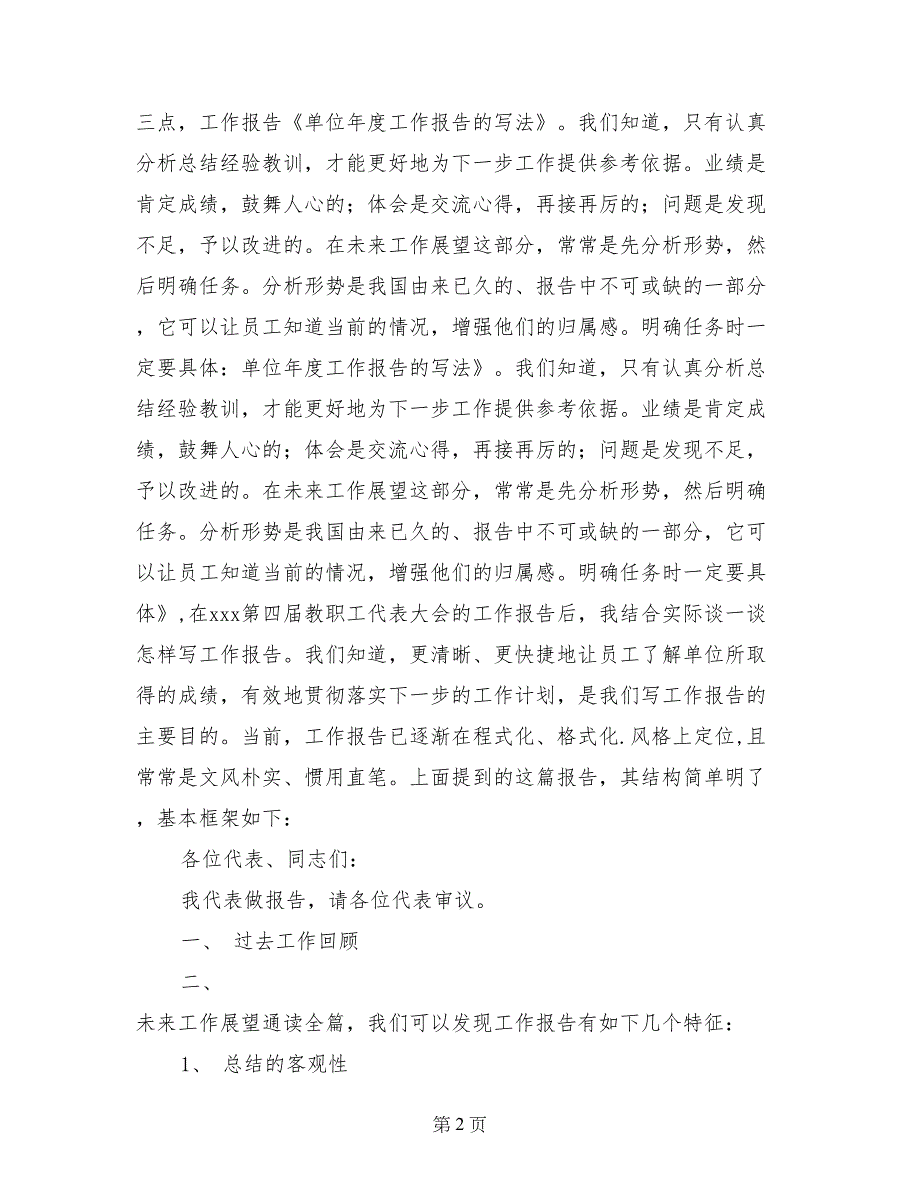 三点，工作报告《单位年度工作报告的写法》。我们知道，只有认真
分析总结经验教训，才能更好地为下一步工作提供参考依据。业绩是
肯定成绩，鼓舞人心的；体会是交流心得，再接再厉的；问题是发现
不足，予以改进的。在未来工作展望这部分，常常是先分析形势，然
后明确任务。分析形势是我国由来已久的、报告中不可或缺的一部分
，它可以让员工知道当前的情况，增强他们的归属感。明确任务时一
定要具体：单位年度工作报告的写法》。我们知道，只有认真分析总
结经验教训，才能更好地为下一步工作提供参考依据。业绩是肯定成
绩，鼓舞人心的；体会是交流心得，再接再厉的；问题是发现不足，
予以改进的。在未来工作展望这部分，常常是先分析形势，然后明确
任务。分析形势是我国由来已久的、报告中不可或缺的一部分，它可
以让员工知道当前的情况，增强他们的归属感。明确任务时一定要具
体》,在xxx第四届教职工代表大会的工作报告后，我结合实际谈一谈
怎样写工作报告。我们知道，更清晰、更快捷地让员工了解单位所取
得的成绩，有效地贯彻落实下一步的工作计划，是我们写工作报告的
主要目的。当前，工作报告已逐渐在程式化、格式化.风格上定位,且
常常是文风朴实、惯用直笔。上面提到的这篇报告，其结构简单明了
，基本框架如下：
各位代表、同志们：
我代表做报告，请各位代表审议。
一、 过去工作回顾
二、
未来工作展望通读全篇，我们可以发现工作报告有如下几个特征：
1、 总结的客观性
第 2 页